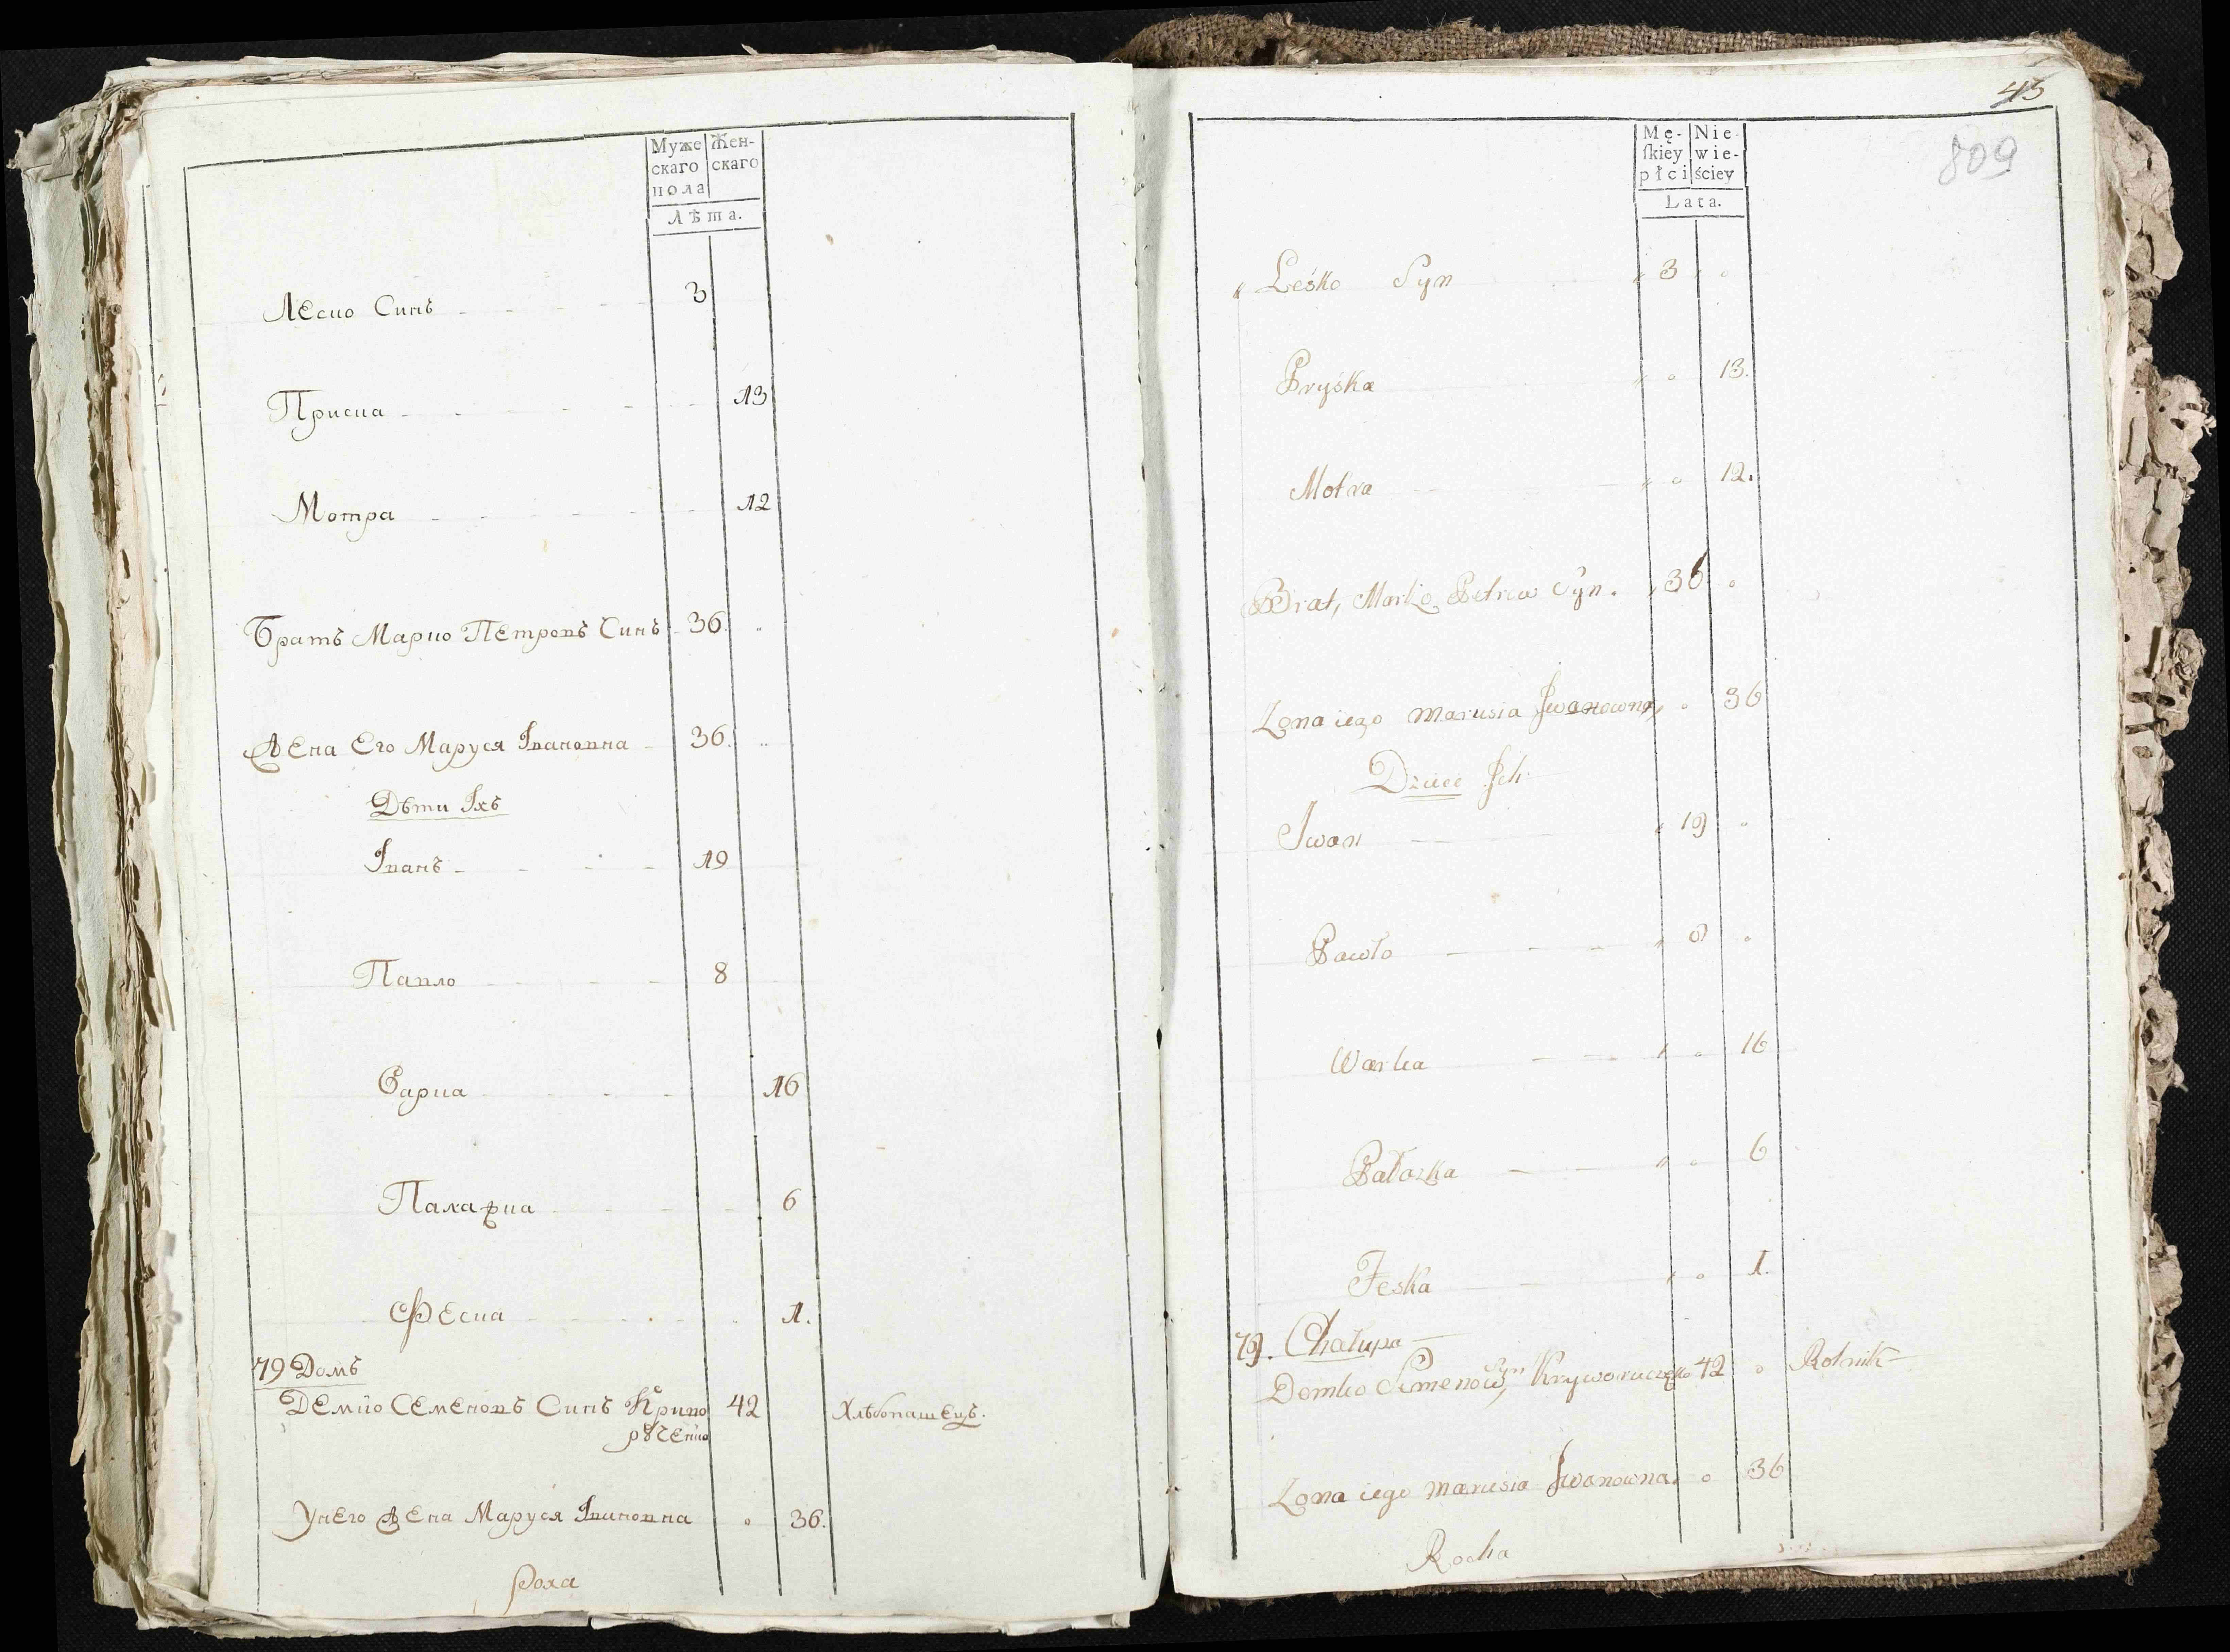 Муже
скаго
пола
Жен-
скаго
Лѣта.
Леско Синъ 3
Приска 13
Мотра 12
Братъ Марко Петровъ Синъ 36.
Жена Его Маруся Івановна 36.
Дѣти Іхъ
Іванъ 19
Павло 8
Варка 16
Палажка 6
Феска 1.
79 Домъ
Демко Семеновъ Синъ Криво 42 Хлѣбопашецъ.
рꙋченко
Унего Жена Маруся Івановна 36.
роха
45
809
Mę-
skiey
płci
Nie-
wie-
ściey
Lata.
Leśko Syn 3
Pryśka 13.
Motra 12.
Brat, Marko Petrow Syn. 36
Zona iego Marusia Jwanowna, 36
Dzieci Jch
Jwan 19
Pawło 8
Warka 16
Pałazka 6
Feska 1.
79. Chałupa
Demko Simenow, Syn Kryworuczęko 42 Rolnik
Zona iego Marusia Jwanowna. 36
Rocha